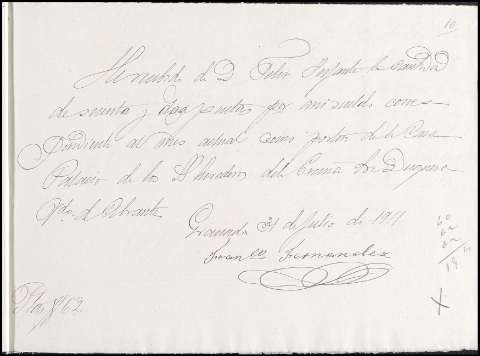 10
He recibido de D. Felix Infante la cantidad
de sesenta y dos pesetas por mi sueldo corres-
pondiente al mes actual como portero de la Casa
Palacio de los Herederos del Exmo Sr Duque
Vdo. de Abrantes
Granada 31 de Julio de 1911
Franco Fernandez
Ptas 62
60
62
62